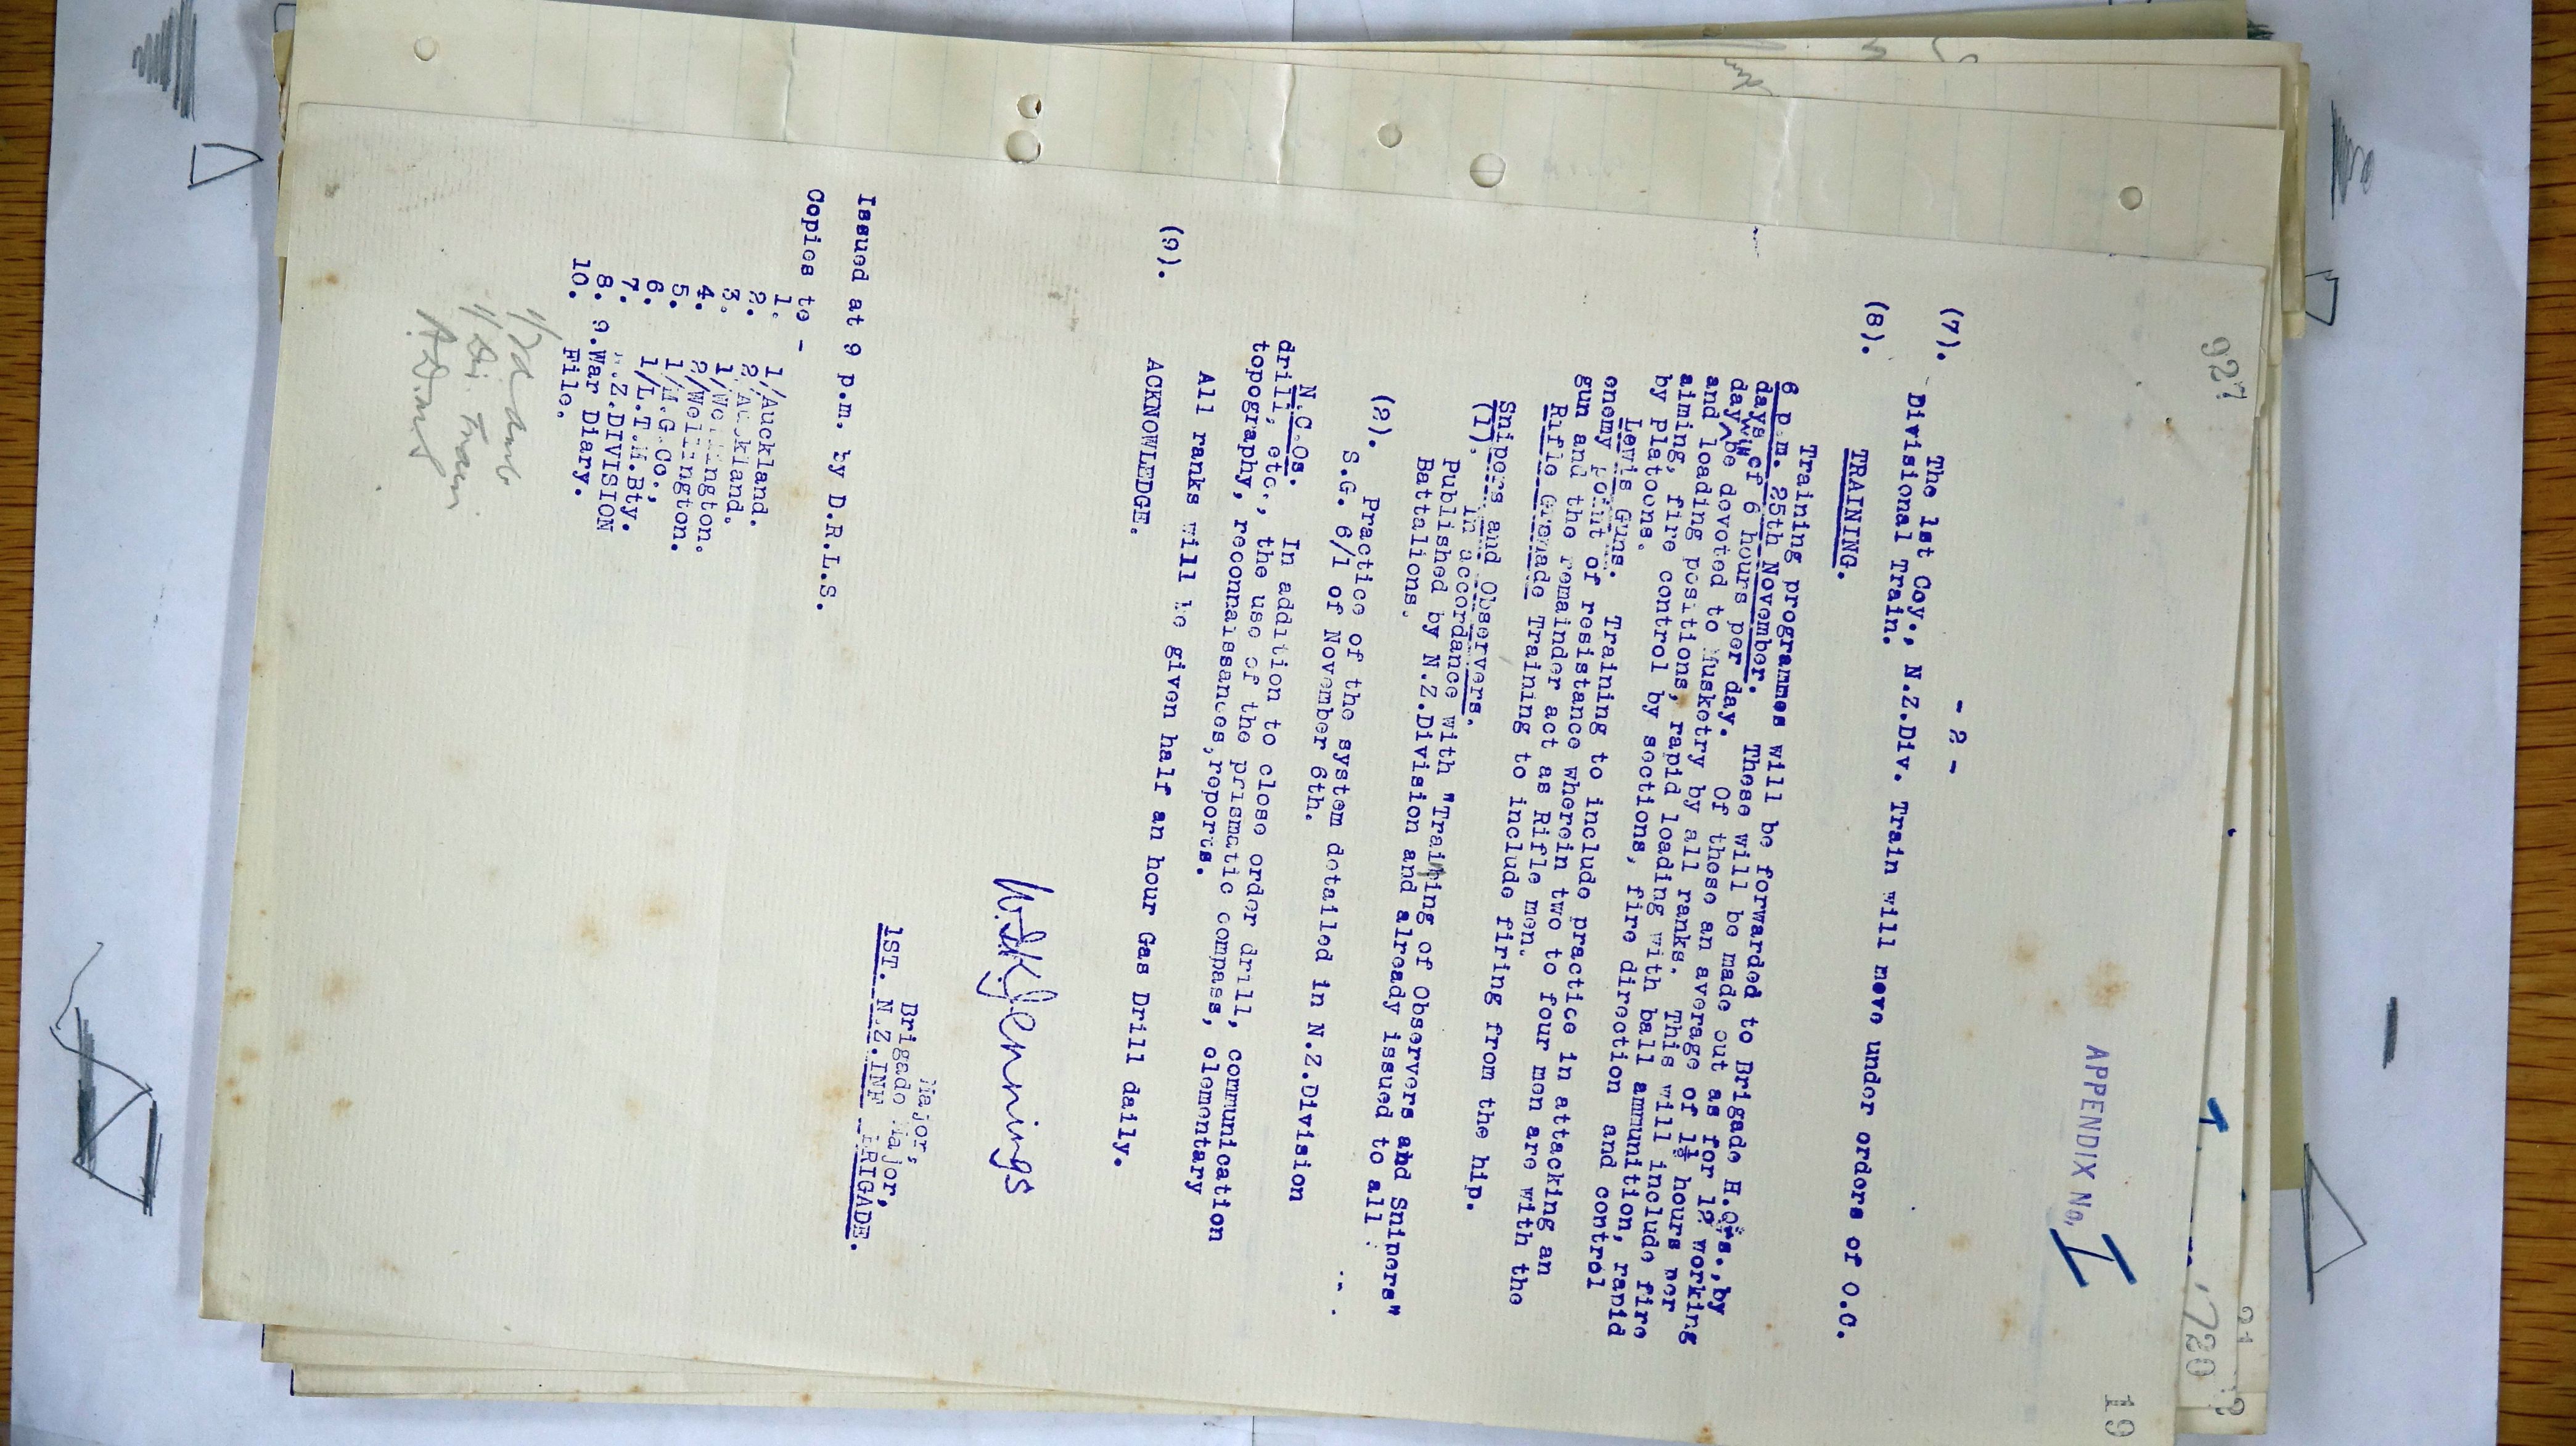 927
APPENDIX No. I
19
- 2 -
(7). The 1st Coy., N.Z.Div. Train will move under orders of O.C.
Divisional Train.
(8). TRAINING.
Training programmes will be forwarded to Brigade H.Qrs., by
6 p.m. 25th November. These will be made out as for 12 working
days of 6 hours per day. Of these an average of 1½ hours per
day will be devoted to Musketry by all ranks. This will include fire
and loading positions, rapid loading with ball ammunition, rapid
aiming, fire control by sections, fire direction and control
by platoons.
Lewis Guns. Training to include practice in attacking an
enemy point of resistance wherein two to four men are with the
gun and the remainder act as Rifle men.
Rifle Grenade Training to include firing from the hip.
Snipers and Observers.
(1). In accordance with "Training of Observers and Snipers"
Published by N.Z.Division and already issued to all
Battalions.
(2). Practice of the system detailed in N.Z.Division
S.G. 6/1 of November 6th.
N.C.Os. In addition to close order drill, communication
drill, etc., the use of the prismatic compass, elementary
topography, reconnaissances, reports.
All ranks will be given half an hour Gas Drill daily.
(9). ACKNOWLEDGE.
Jennings
Major,
Brigade Major,
1ST. N.Z.INF BRIGADE.
Issued at 9 p.m. by D.R.L.S.
Copies to -
1. 1/Auckland.
2. 2/Auckland.
3. 1/Wellington.
4. 2/Wellington.
5. 1/M.G.Co.,
6. 1/L.T.M.Bty.
7. N.Z.DIVISION
8. 9. War Diary.
10. File.
1/Fd Amb
1/Div. Train
A.D.M.S
1720